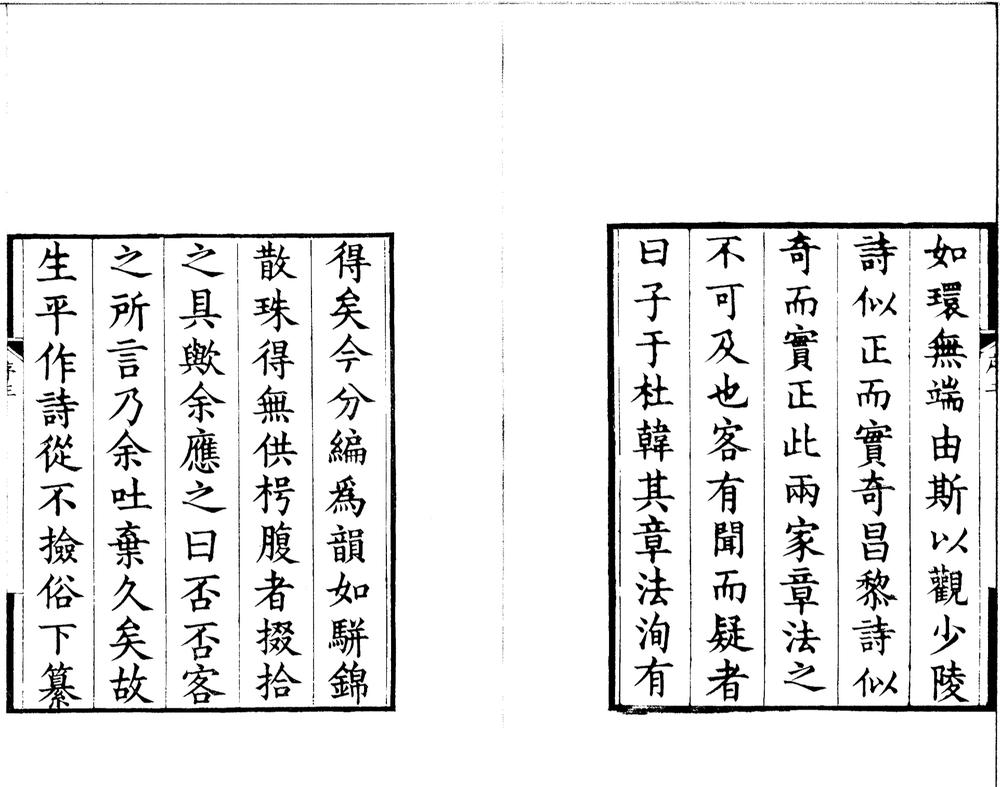 如環無端由斯以觀少陵
詩似正而實奇昌黎詩似
奇而實正此兩家章法之
不可及也客有聞而疑者
曰子于杜韓其章法洵有
得矣今分編爲韻如駢錦
散珠得無供枵腹者掇拾
之具歟余應之曰否否客
之所言乃余吐棄久矣故
生平作詩從不撿俗下纂